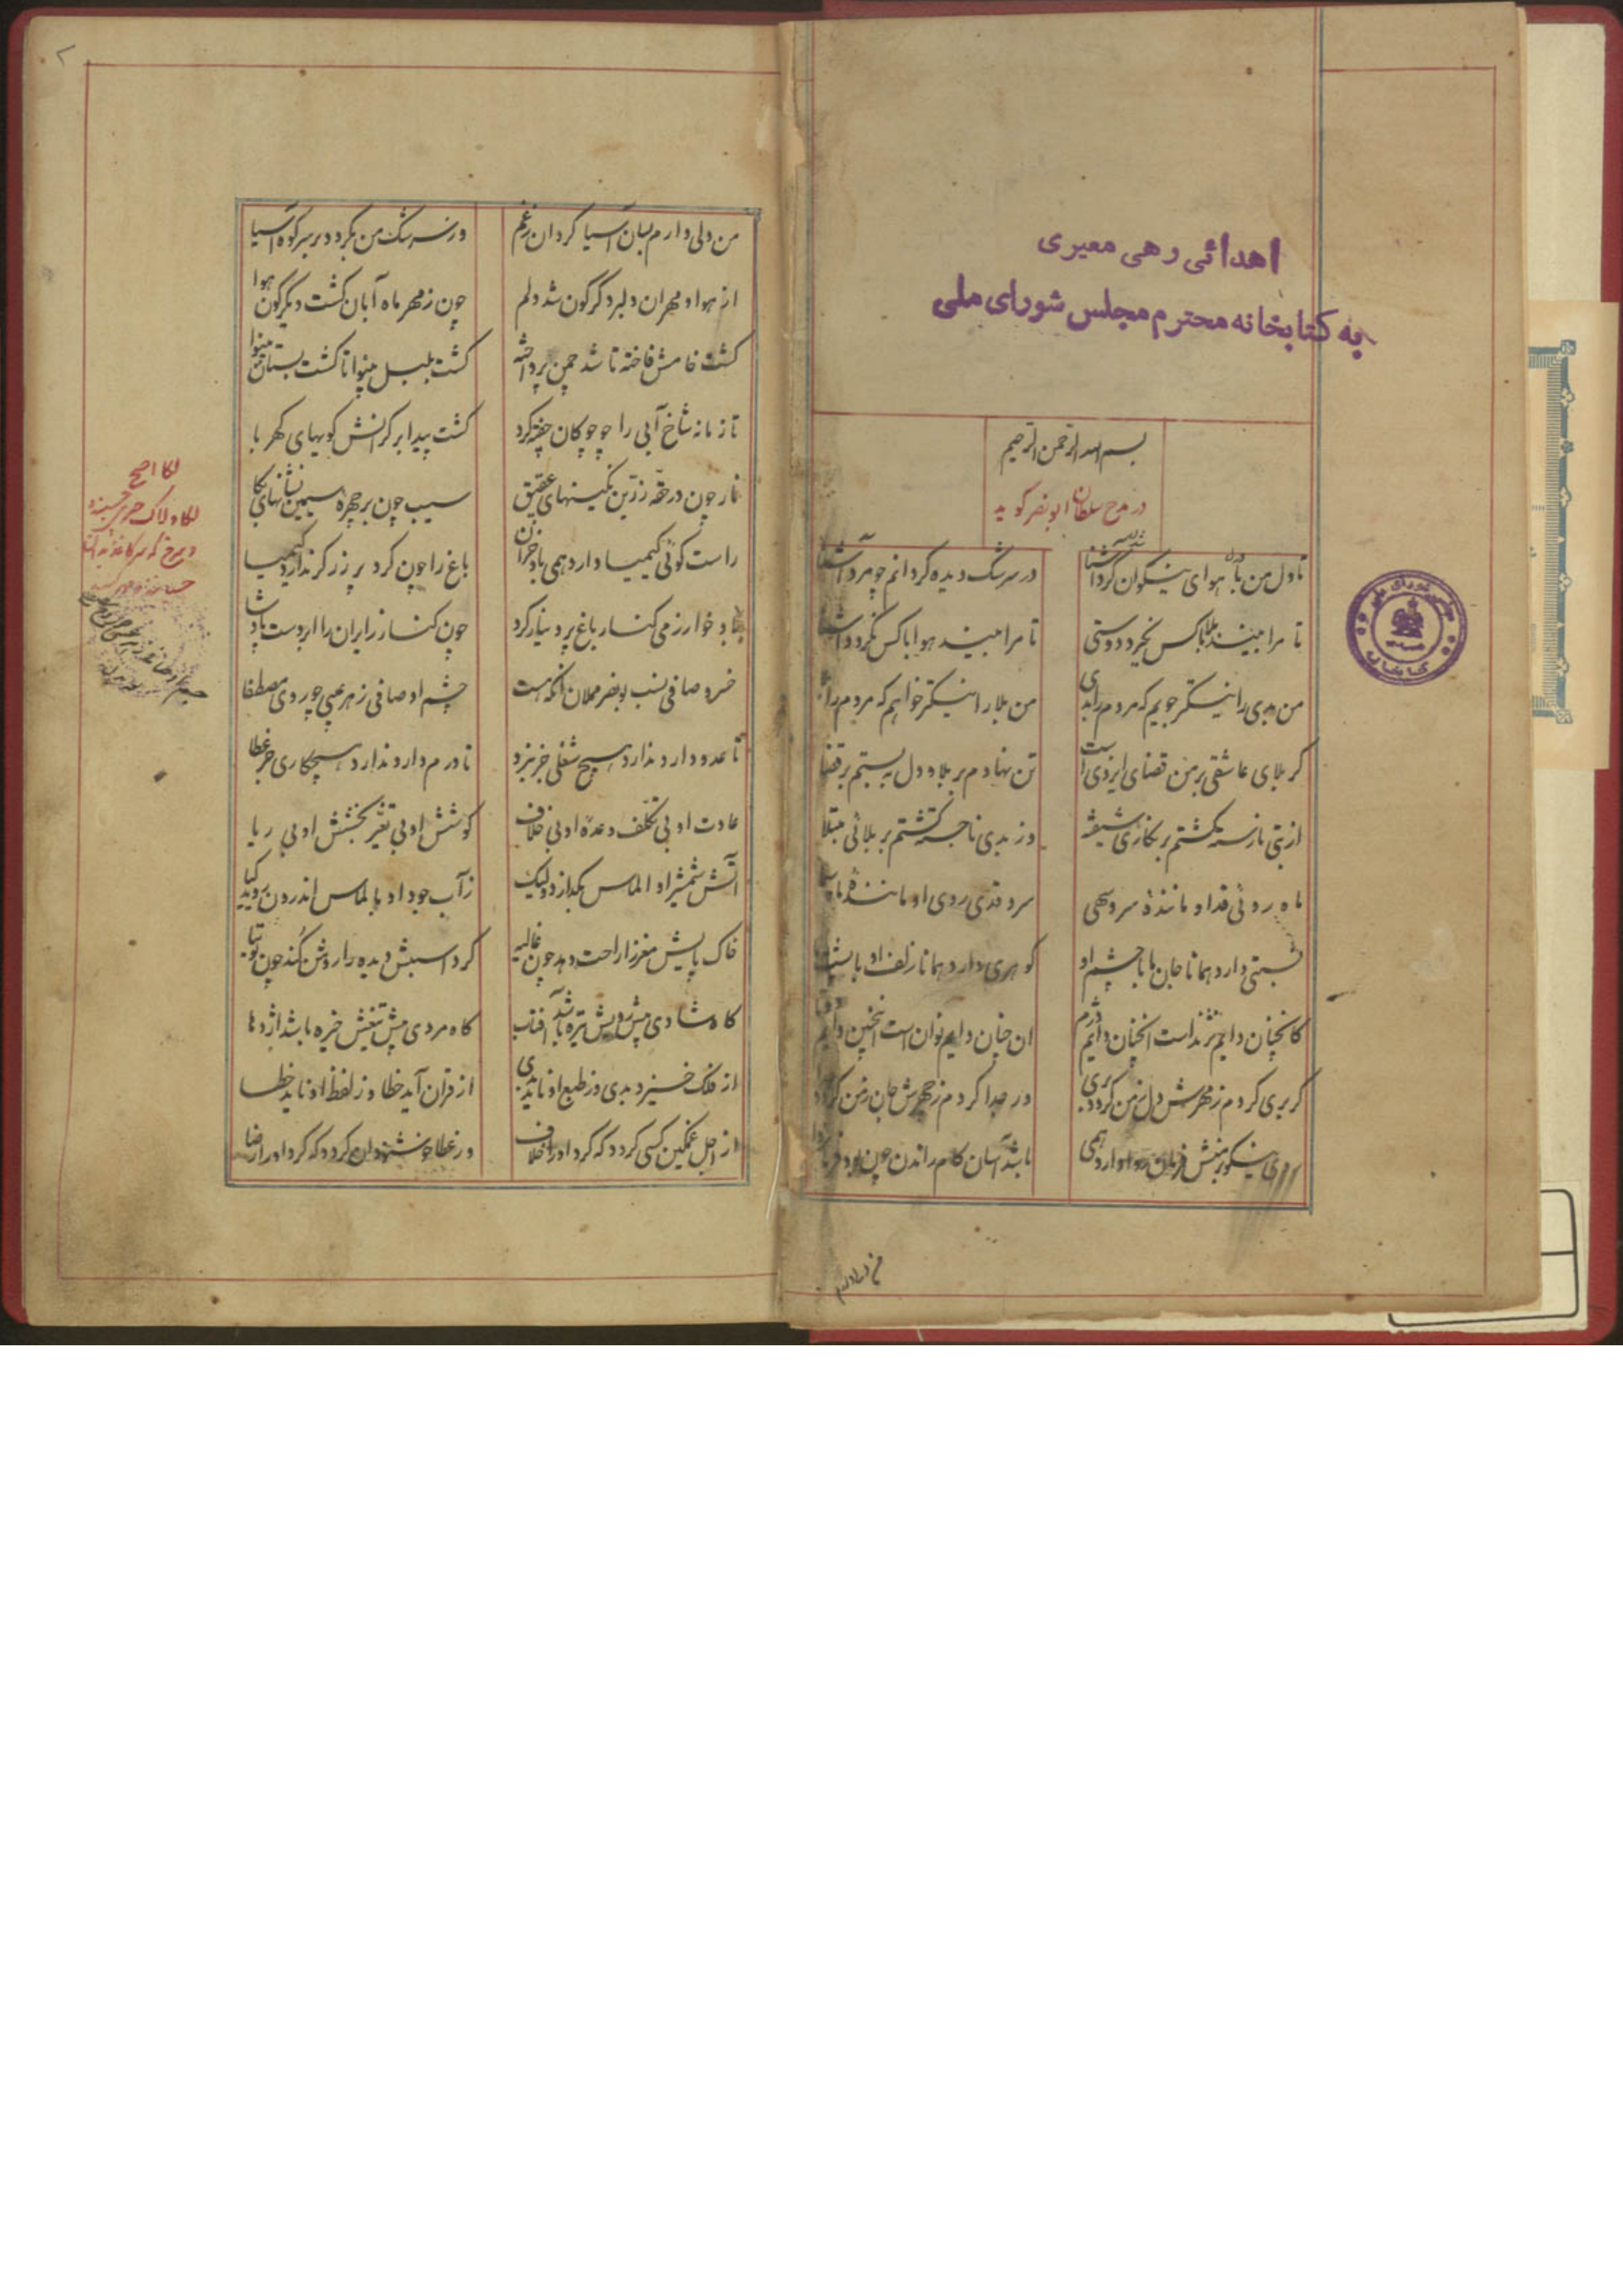 اهدائی رهی معیری
به کتابخانه محترم مجلس شورای ملی
بسم الله الرحمن الرحیم
در مدح سلطان ابونصر گوید
تا دل من با هوای نیکوان گشت آشنا در سرشگ دیده گردانم چو مرد آشنا
تا مرا بیند بلا با کس نگیرد دوستی تا مرا بیند هوا با کس نگردد آشنا
من بدی را نیکتر جویم که مردم را بدی من بلا را نیکتر خواهم که مردم را
گر بلای عاشقی بر من قضای ایزدی است تن نهادم بر بلا و دل ببستم بر قضا
از بتی نارسته گشتم بر نگاری شیفته وز بدی ناجسته گشتم بر بلائی مبتلا
ماه روئی قد او ماننده سرو سهی سرو قدی روی او ماننده ماه سما
نسبتی دارد همانا جان ما با چشم او گوهری دارد همانا زلف او با پشت
کانچنان دایم نژند است انچنان دایم دژم ان چنان دایم نوان است اینچنین دایم دوتا
گر بری کردم ز مهرش دل ز من گردد بری ور جدا کردم ز مهرش جان ز من گردد
نیکو بر منش فرمان روا دارد همی باشد آسان کام راندن چون بود فرمان
من دلی دارم بسان آسیا گردان ز غم وز سرشگ من بگردد بر سر کوه آسیا
از هوا و مهر ان دلبر دگرگون شد دلم چون ز مهر ماه آبان گشت دیگرگون هوا
گشت خامش فاخته تا شد چمن پرداخته گشت بلبل بینوا تا گشت بستان بینوا
تا زمانه شاخ آبی را چو چوگان چفته کرد گشت پیدا بر کرانش گویهای کهربا
نار چون در حقه زرین نگینهای عقیق سیب چون بر چهره سیمین نشانهای بکا
راست گوئی کیمیا دارد همی باد خزان باغ را چون کرد پر زر گر ندارد کیمیا
باد خوارزمی کنار باغ پر دینار کرد چون کنار زایران را ابر دست پادشا
خسرو صافی نسب بونصر مملان آنکه هست چشم او صافی ز هر عیبی چو روی مصطفا
تا عدو دارد ندارد هیچ شغلی جز نبرد تا درم دارد ندارد هیچکاری جز عطا
عادت او بی تکلف وعده او بی خلاف کوشش او بی تغیر بخشش او بی ریا
آتش شمشیر او الماس بگدازد ولیک زآب جود او بالماس اندرون روید گیا
خاک پایش مغز را راحت دهد چون غالیه گرد اسبش دیده را روشن کند چون توتیا
گاه شادی پیش رویش تیره باشد آفتاب گاه مردی پیش تیغش خیره باشد اژدها
از فلک خیزد بدی وز طبع او ناید بدی از قران آید خطا وز لفظ او ناید خطا
از اجل غمگین کسی گردد که گرد او را خلاف وز عطا خشنود آن گردد که گرد او را رضا
لکا اصح